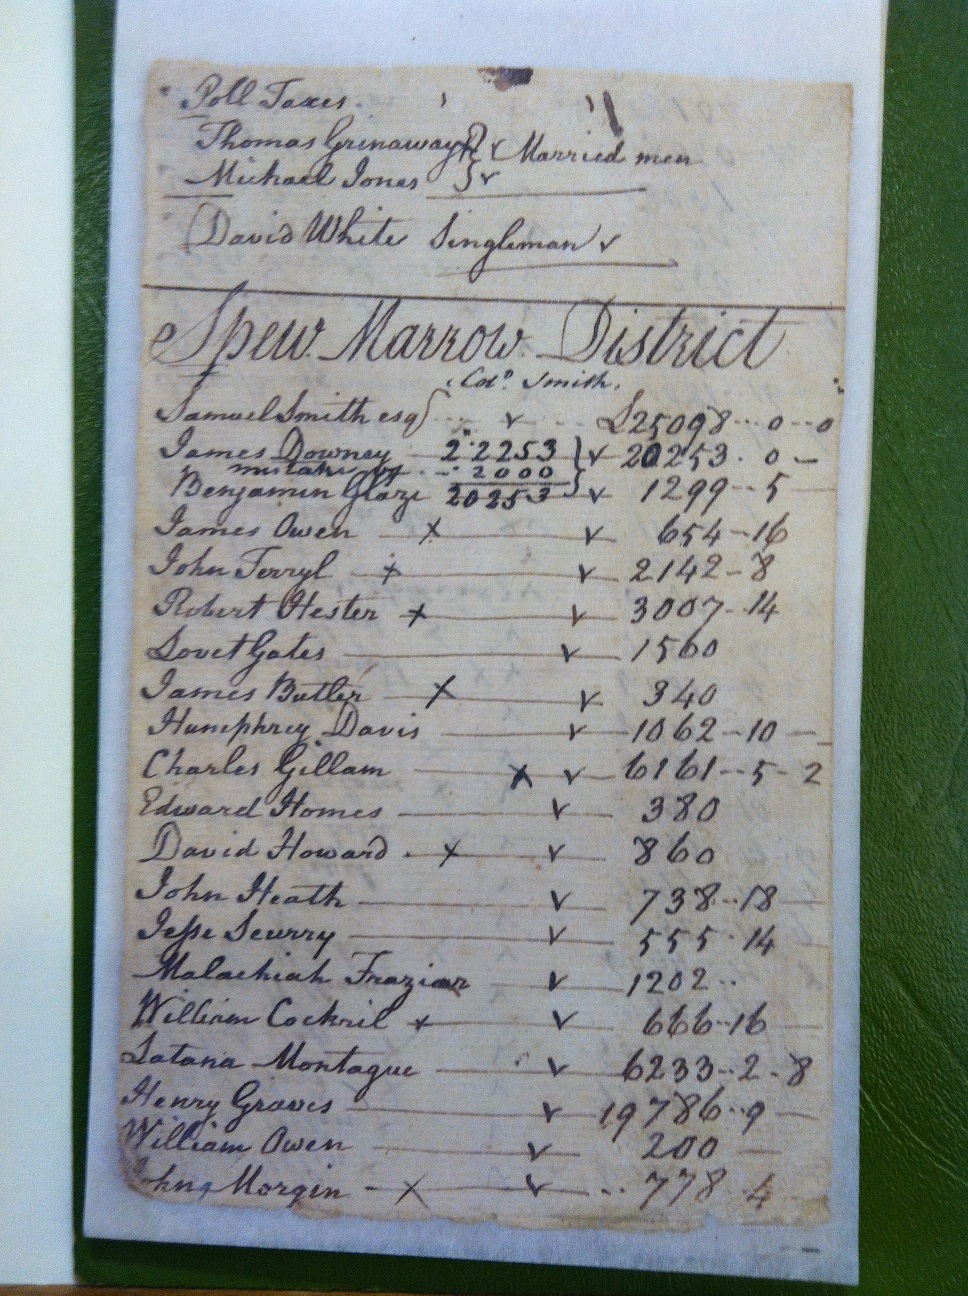 Poll Taxes.
Thomas Grinaway } v Married men
Michael Jones } v
David White Singleman v
Spew Marrow District
Colo Smith.
Samuel Smith esqr v £25098 .. 0 .. 0
James Downey 22253 } v 20253 . 0 –
mistake of – 2000
Benjamin Glaze 20253 } v 1299 .. 5
James Owen x v 654 – 16
John Terryl x v 2142 – 8
Robert Hester x v 3007 .. 14
Lovet Gates v 1560
James Butler x v 340
Humphrey Davis v 1062 – 10 –
Charles Gillam x v 6161 .. 5 – 2
Edward Homes v 380
David Howard x v 860
John Heath v 738 .. 18
Jesse Scurry v 555 . 14
Malachiah Frazier v 1202 ..
William Cockril x v 666 .. 16
Latana Montague v 6233 .. 2 . 8
Henry Graves v 19786 .. 9
William Owen v 200
John Morgin – x v .. 778 . 4